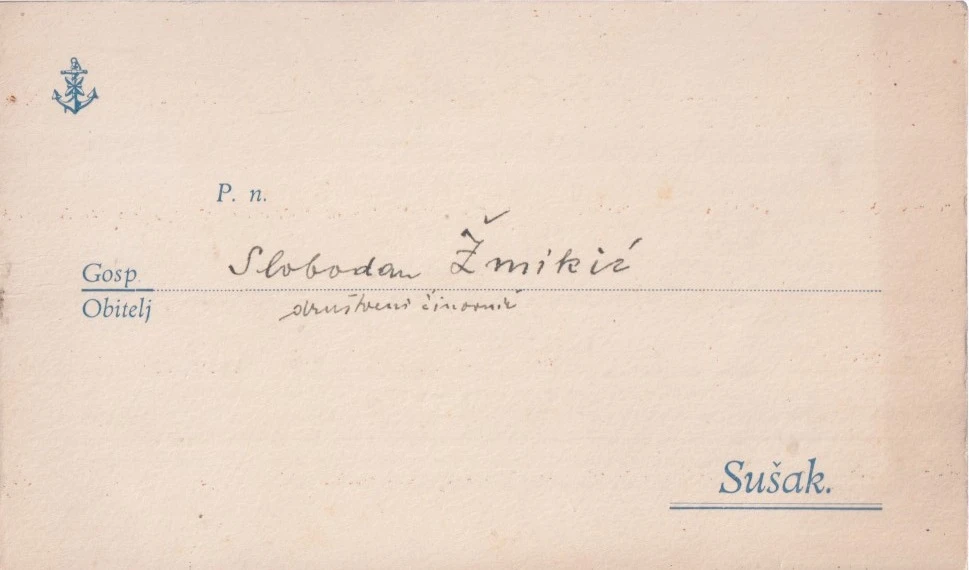 P. n.
Gosp
Slobodan Žmikić
Obitelj
društveni činovnik
Sušak.